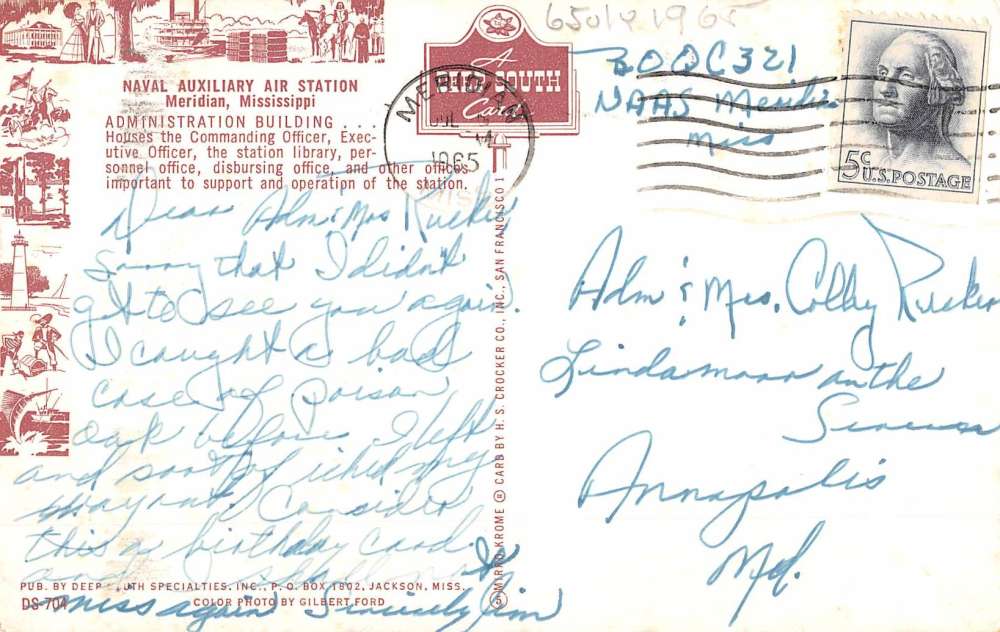 NAVAL AUXILIARY AIR STATION
Meridian, Mississippi
ADMINISTRATION BUILDING . . .
Houses the Commanding Officer, Exec-
utive Officer, the station library, per-
sonnel office, disbursing office, and other offices
important to support and operation of the station.
Dear Adm & Mrs Rucker
Sorry that I didn't
get to see you again.
I caught a bad
case of poison
oak before I left
and sort of itched my
way out. Consider
this a birthday card
and I shall not
miss again Sincerely Jim
PUB. BY DEEP SOUTH SPECIALTIES, INC., P. O. BOX 1802, JACKSON, MISS.
DS-704
COLOR PHOTO BY GILBERT FORD
A
DEEP SOUTH
Card
MIRRO-KROME ® CARD BY H. S. CROCKER CO., INC., SAN FRANCISCO 1
MERIDIAN
JUL
1965
1965
BOQ C321
NAAS Meridian
Miss
5¢
U.S. POSTAGE
Adm & Mrs. Colby Rucker
Lindamoor on the
Severn
Annapolis
Md.